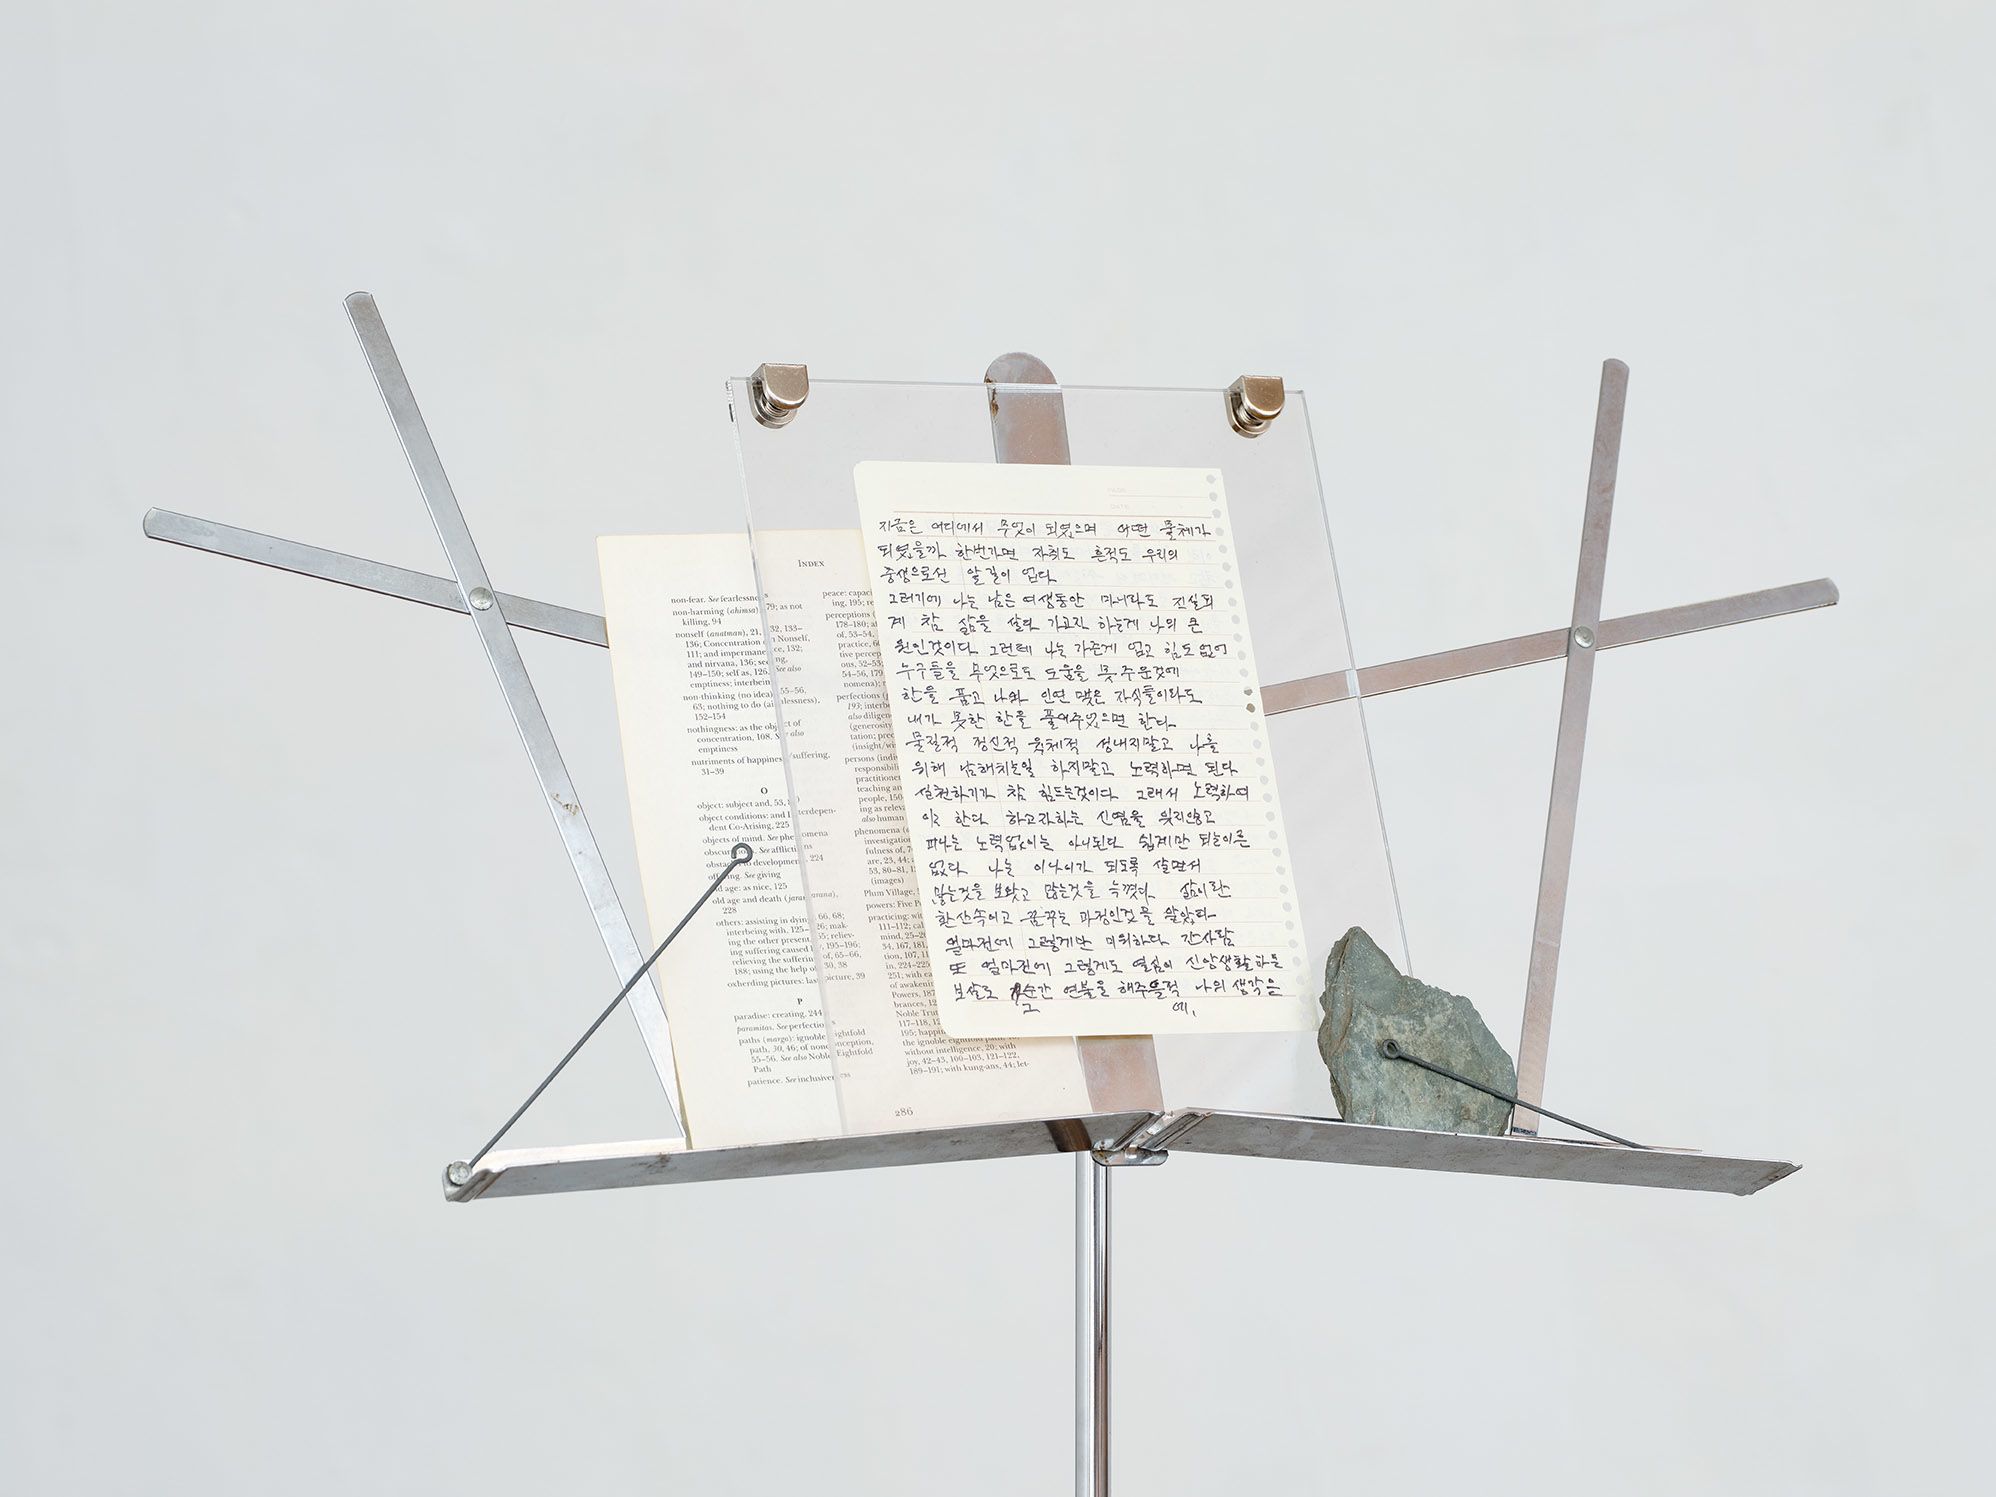 INDEX
non-fear. See fearlessness
non-harming (ahimsa), 79; as not
killing, 94
nonself (anatman), 21, 32, 133–
136; Concentration on Nonself,
111; and impermanence, 132;
and nirvana, 136; see
149–150; self as, 126. See also
emptiness; interbein
non-thinking (no idea) 55–56,
63; nothing to do (aimlessness),
152–154
nothingness: as the object of
concentration, 108. See also
emptiness
nutriments of happiness/suffering,
31–39
O
object: subject and, 53,
object conditions: and Interdepen-
dent Co-Arising, 225
objects of mind. See phenomena
obscurations. See afflictions
development, 224
offering. See giving
old age: as nice, 125
old age and death (jaramarana),
228
others: assisting in dying, 66, 68;
interbeing with, 125–26; mak-
ing the other present, 55; reliev-
ing suffering caused by, 195–196;
relieving the suffering of, 65–66,
188; using the help of, 30, 38
oxherding pictures: last picture, 39
P
paradise: creating, 244
paramitas. See perfections
paths (marga): ignoble Eightfold
path, 30, 46; of nonconception,
55–56. See also Noble Eightfold
Path
patience. See inclusiveness
peace: capac
ing, 195; re
perceptions (
178–180; a
of, 53–54,
practice, 6
tive percep
ous, 52–53
54–56, 179
nomena); r
perfections (
193; interb
also diligen
(generosity
tation; prec
(insight/wi
persons (indi
responsibili
practitione
teaching an
people, 150
ing as relev
also human
phenomena (
investigation
fulness of, 7
are, 23, 44; a
53, 80–81, 1
(images)
Plum Village,
powers: Five Po
practicing: wit
111–112; cal
mind, 25–26
34, 167, 181,
tion, 107, 11
in, 224–225
251; with ea
of awakenin
Powers, 187
brances, 12
Noble Trut
117–118, 12
195; happin
the ignoble eightfold path,
without intelligence, 20; with
joy, 42–43, 100–103, 121–122,
189–191; with kung-ans, 44; let-
286
지금은 어디에서 무엇이 되였으며 어떤 물체가
되였을까 한번가면 자취도 흔적도 우리의
중생으로선 알길이 업다
그러기에 나는 남은 여생동안 마니라도 진실되
게 참 삶을 살다 가고자 하는게 나의 큰
원인것이다 그런데 나는 가준게 업고 힘도 없어
누구들을 무엇으로도 도움을 못주운것에
한을 품고 나와 인연 맺은 자식들이라도
내가 못한 한을 풀어주었으면 한다
물질적 정신적 육체적 성내지말고 나를
위해 남해치는일 하지말고 노력하면 된다
실천하기가 참 힘드는것이다 그래서 노력하여
야 한다 하고자하는 신념을 잊지않고
피나는 노력없이는 아니된다 쉽게만 되는이른
없다 나는 이나이가 되도록 살면서
많는것을 보왓고 많는것을 늑꼈다 삶이란
한산속이고 꿈꾸는 과정인것을 알았다
얼마전에 그렇게만 미워하다 간사람
또 얼마전에 그렇게도 열심이 신앙생활하든
보살로 순간 연불을 해주을적 나의 생각은
그 에,